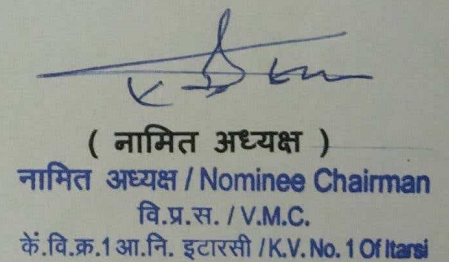 ( नामित अध्यक्ष )
नामित अध्यक्ष / Nominee Chairman
वि.प्र.स. / V.M.C.
कें.वि.क्र.1 आ.नि. इटारसी / K.V. No. 1 Of Itarsi